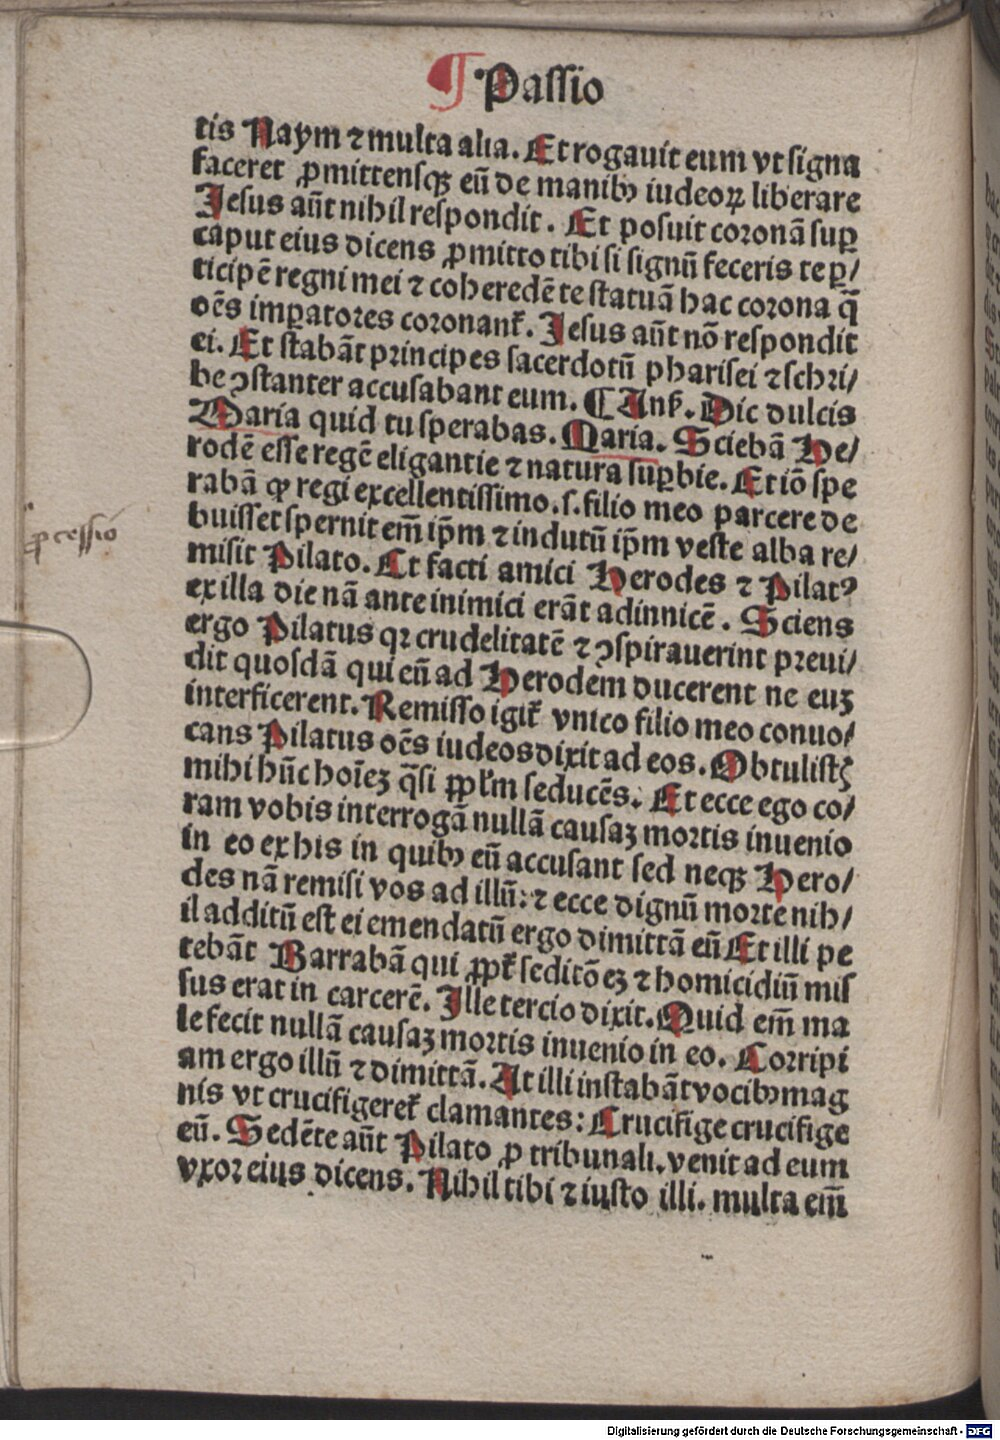 ¶ Passio
tis Naym ⁊ multa alia. Et rogauit eum vt signa
faceret ꝓmittensqꝫ eū de manibꝰ iudeoꝝ liberare
Jesus aūt nihil respondit. Et posuit coronā suꝑ
caput eius dicens ꝓmitto tibi si signū feceris te ꝑ/
ticipē regni mei ⁊ coheredē te statuā hac corona q̄
oēs imꝑatores coronanť. Jesus aūt nō respondit
ei. Et stabāt principes sacerdotū pharisei ⁊ schri/
be ꝯstanter accusabant eum. ¶ Anß. Dic dulcis
Maria quid tu sperabas. Maria. Sciebā He/
rodē esse regē eligantie ⁊ natura suꝑbie. Et iō spe
rabā ꝙ regi excellentissimo .s. filio meo parcere de
buisset spernit em̄ ip̄m ⁊ indutū ip̄m veste alba re/
misit Pilato. Et facti amici Herodes ⁊ Pilatꝰ
ex illa die nā ante inimici erāt adinnicē. Sciens
ergo Pilatus qꝛ crudelitatē ⁊ ꝯspirauerint preui/
dit quosdā qui eū ad Herodem ducerent ne euꝫ
interficerent. Remisso igiť vnico filio meo conuo/
cans Pilatus oēs iudeos dixit ad eos. Obtulistꝭ
mihi hūc hoīeꝫ q̄si ꝓpľm seducēs. Et ecce ego co/
ram vobis interrogā nullā causaꝫ mortis inuenio
in eo ex his in quibꝰ eū accusant sed neqꝫ Hero/
des nā remisi vos ad illū: ⁊ ecce dignū morte nih/
il additū est ei emendatū ergo dimittā eū Et illi pe
tebāt Barrabā qui ꝓpť seditōeꝫ ⁊ homicidiū mis
sus erat in carcerē. Ille tercio dixit. Quid em̄ ma
le fecit nullā causaꝫ mortis inuenio in eo. Corripi
am ergo illū ⁊ dimittā. At illi instabāt vocibꝰ mag
nis vt crucifigereť clamantes: Crucifige crucifige
eū. Sedēte aūt Pilato ꝓ tribunali. venit ad eum
vxor eius dicens. Nihil tibi ⁊ iusto illi. multa em̄
ꝓcessio
Digitalisierung gefördert durch die Deutsche Forschungsgemeinschaft - DFG